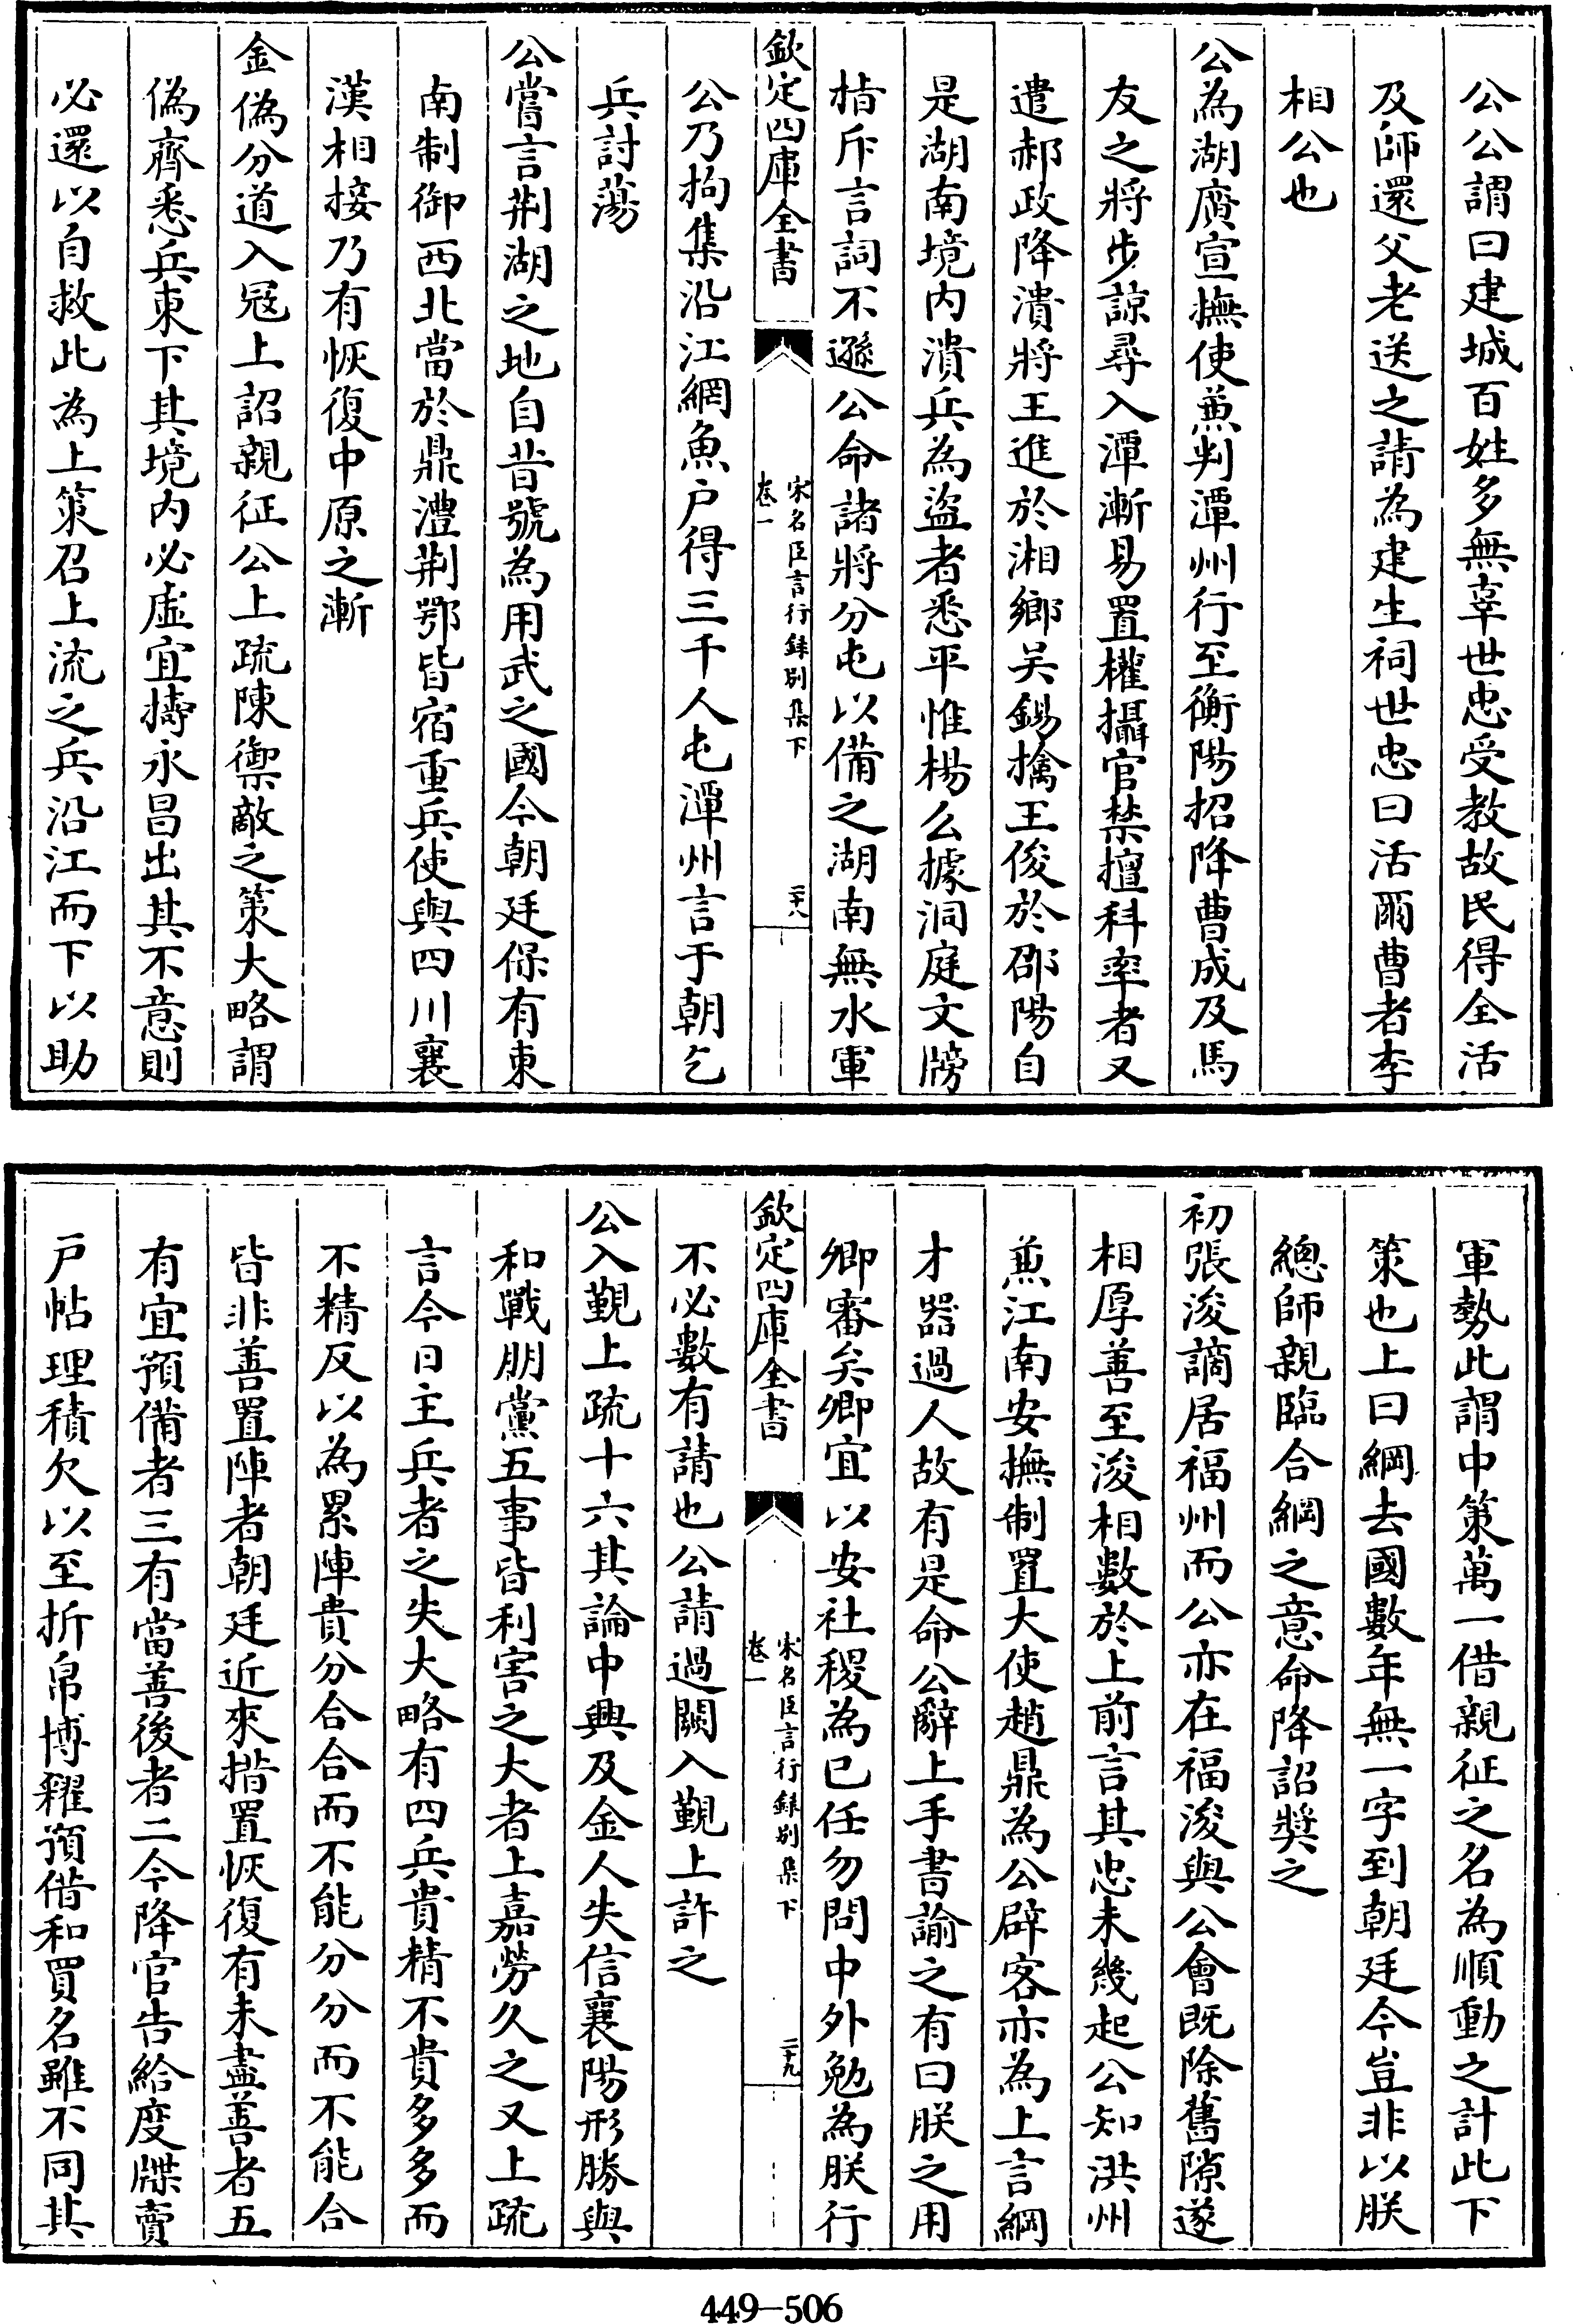 公公謂曰建城百姓多無辜世忠受教故民得全活
及師還父老送之請為建生祠世忠曰活爾曹者李
相公也
公為湖廣宣撫使兼判潭州行至衡陽招降曹成及馬
友之將步諒尋入潭漸易置權攝官禁擅科率者又
遣郝政降潰將王進於湘鄉吳錫擒王俊於邵陽自
是湖南境内潰兵為盜者悉平惟楊么據洞庭文牓
指斥言詞不遜公命諸將分屯以備之湖南無水軍
欽定四庫全書
宋名臣言行錄别集下
卷一
二十八
公乃拘集沿江綱魚户得三千人屯潭州言于朝乞
兵討蕩
公嘗言荆湖之地自昔號為用武之國今朝廷保有東
南制御西北當於鼎澧荆鄂皆宿重兵使與四川襄
漢相接乃有恢復中原之漸
金偽分道入冦上詔親征公上疏陳禦敵之策大略謂
偽齊悉兵東下其境内必虚宜擣永昌出其不意則
必還以自救此為上策召上流之兵沿江而下以助
軍勢此謂中策萬一借親征之名為順動之計此下
策也上曰綱去國數年無一字到朝廷今豈非以朕
總師親臨合綱之意命降詔奬之
初張浚謫居福州而公亦在福浚與公會既除舊隙遂
相厚善至浚相數於上前言其忠未幾起公知洪州
兼江南安撫制置大使趙鼎為公辟客亦為上言綱
才器過人故有是命公辭上手書諭之有曰朕之用
卿審矣卿宜以安社稷為已任勿問中外勉為朕行
欽定四庫全書
宋名臣言行錄别集下
卷一
二十九
不必數有請也公請過闕入覲上許之
公入覲上疏十六其論中興及金人失信襄陽形勝與
和戰朋黨五事皆利害之大者上嘉勞久之又上疏
言今日主兵者之失大略有四兵貴精不貴多多而
不精反以為累陣貴分合合而不能分分而不能合
皆非善置陣者朝廷近來措置恢復有未盡善者五
有宜預備者三有當善後者二今降官告給度牒賣
户帖理積欠以至折帛博糴預借和買名雖不同其
449-506